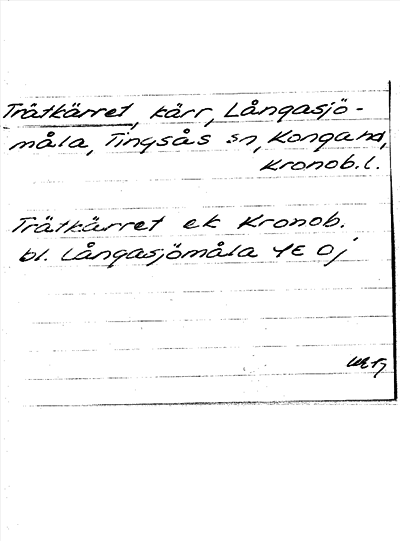 Trätkärret, kärr, Långasjö-
måla, Tingsås sn, Konga hd,
Kronob. l.
Trätkärret ek Kronob.
bl. Långasjömåla 4E 0j